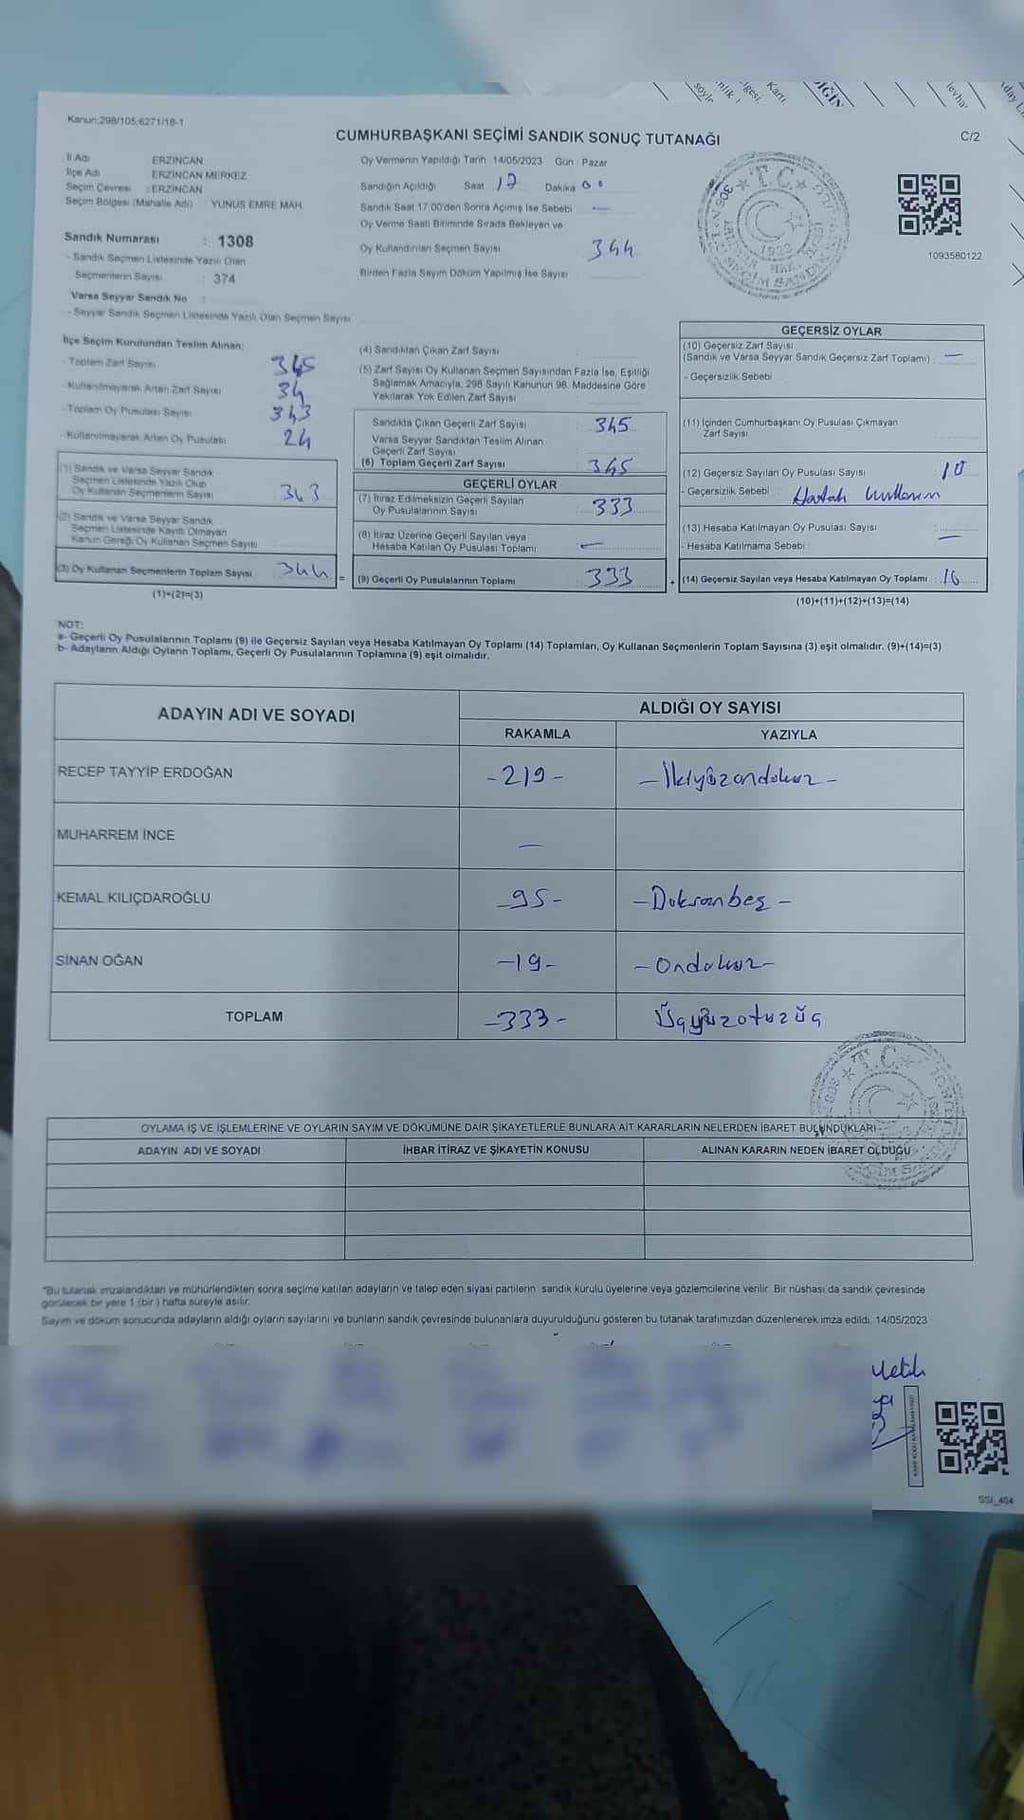 Kanun:298/105;6271/18-1
CUMHURBAŞKANI SEÇİMİ SANDIK SONUÇ TUTANAĞI
C/2
İl Adı ERZİNCAN
İlçe Adı ERZİNCAN MERKEZ
Seçim Çevresi : ERZİNCAN
Seçim Bölgesi (Mahalle Adı) YUNUS EMRE MAH.
Sandık Numarası : 1308
- Sandık Seçmen Listesinde Yazılı Olan
Seçmenlerin Sayısı : 374
Varsa Seyyar Sandık No :
- Seyyar Sandık Seçmen Listesinde Yazılı Olan Seçmen Sayısı
Oy Vermenin Yapıldığı Tarih 14/05/2023 Gün : Pazar
Sandığın Açıldığı Saat 17 Dakika 00
Sandık Saat 17:00'den Sonra Açımış İse Sebebi —
Oy Verme Saati Bitiminde Sırada Bekleyen ve
Oy Kullandırılan Seçmen Sayısı 344
Birden Fazla Sayım Döküm Yapılmış İse Sayısı
1093580122
İlçe Seçim Kurulundan Teslim Alınan:
- Toplam Zarf Sayısı 345
- Kullanılmayarak Artan Zarf Sayısı 34
- Toplam Oy Pusulası Sayısı 343
- Kullanılmayarak Artan Oy Pusulası 24
(1) Sandık ve Varsa Seyyar Sandık
Seçmen Listesinde Yazılı Olup
Oy Kullanan Seçmenlerin Sayısı 343
(2) Sandık ve Varsa Seyyar Sandık
Seçmen Listesinde Kayıtlı Olmayan
Kanun Gereği Oy Kullanan Seçmen Sayısı
(3) Oy Kullanan Seçmenlerin Toplam Sayısı 344 =
(1)+(2)=(3)
(4) Sandıktan Çıkan Zarf Sayısı
(5) Zarf Sayısı Oy Kullanan Seçmen Sayısından Fazla İse, Eşitliği
Sağlamak Amacıyla, 298 Sayılı Kanunun 98. Maddesine Göre
Yakılarak Yok Edilen Zarf Sayısı
Sandıkta Çıkan Geçerli Zarf Sayısı 345
Varsa Seyyar Sandıktan Teslim Alınan
Geçerli Zarf Sayısı
(6) Toplam Geçerli Zarf Sayısı 345
GEÇERLİ OYLAR
(7) İtiraz Edilmeksizin Geçerli Sayılan
Oy Pusulalarının Sayısı 333
(8) İtiraz Üzerine Geçerli Sayılan veya
Hesaba Katılan Oy Pusulası Toplamı —
(9) Geçerli Oy Pusulalarının Toplamı 333 +
GEÇERSİZ OYLAR
(10) Geçersiz Zarf Sayısı
(Sandık ve Varsa Seyyar Sandık Geçersiz Zarf Toplamı) —
- Geçersizlik Sebebi
(11) İçinden Cumhurbaşkanı Oy Pusulası Çıkmayan
Zarf Sayısı
(12) Geçersiz Sayılan Oy Pusulası Sayısı 10
- Geçersizlik Sebebi : Hatalı kullanım
(13) Hesaba Katılmayan Oy Pusulası Sayısı —
- Hesaba Katılmama Sebebi
(14) Geçersiz Sayılan veya Hesaba Katılmayan Oy Toplamı : 10
(10)+(11)+(12)+(13)=(14)
NOT:
a- Geçerli Oy Pusulalarının Toplamı (9) ile Geçersiz Sayılan veya Hesaba Katılmayan Oy Toplamı (14) Toplamları, Oy Kullanan Seçmenlerin Toplam Sayısına (3) eşit olmalıdır. (9)+(14)=(3)
b- Adayların Aldığı Oyların Toplamı, Geçerli Oy Pusulalarının Toplamına (9) eşit olmalıdır.
ADAYIN ADI VE SOYADI
ALDIĞI OY SAYISI
RAKAMLA YAZIYLA
RECEP TAYYİP ERDOĞAN -219- -İkiyüzondokuz-
MUHARREM İNCE —
KEMAL KILIÇDAROĞLU -95- -Doksanbeş-
SİNAN OĞAN -19- -Ondokuz-
TOPLAM -333- Üçyüzotuzüç
OYLAMA İŞ VE İŞLEMLERİNE VE OYLARIN SAYIM VE DÖKÜMÜNE DAİR ŞİKAYETLERLE BUNLARA AİT KARARLARIN NELERDEN İBARET BULUNDUKLARI
ADAYIN ADI VE SOYADI İHBAR İTİRAZ VE ŞİKAYETİN KONUSU ALINAN KARARIN NEDEN İBARET OLDUĞU
*Bu tutanak imzalandıktan ve mühürlendikten sonra seçime katılan adayların ve talep eden siyasi partilerin sandık kurulu üyelerine veya gözlemcilerine verilir. Bir nüshası da sandık çevresinde
görülecek bir yere 1 (bir) hafta süreyle asılır.
Sayım ve döküm sonucunda adayların aldığı oyların sayılarını ve bunların sandık çevresinde bulunanlara duyurulduğunu gösteren bu tutanak tarafımızdan düzenlenerek imza edildi. 14/05/2023
SSİ_404